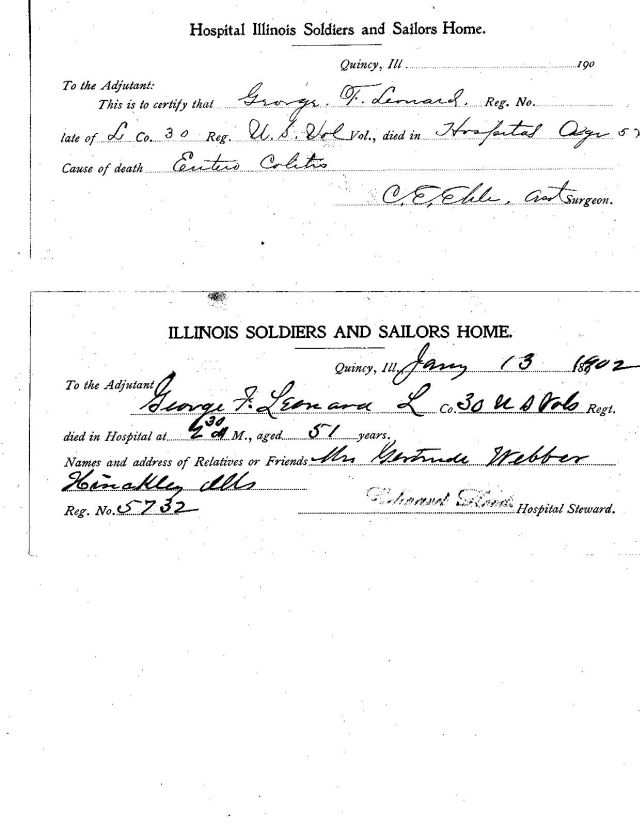 Hospital Illinois Soldiers and Sailors Home.
Quincy, Ill. 190
To the Adjutant:
This is to certify that George. F. Leonard. Reg. No.
late of L Co. 30 Reg. U.S. Vol Vol., died in Hospital Age 5
Cause of death Entero Colitis
C. E. Ehle, Asst Surgeon.
ILLINOIS SOLDIERS AND SAILORS HOME.
Quincy, Ill, Jany 13 1902
To the Adjutant
George F. Leonard L Co. 30 U S Vols Regt.
died in Hospital at 30 M., aged 51 years.
Names and address of Relatives or Friends Mrs Gertrude Webber
Hinckley Ills
Reg. No. 5732 Hospital Steward.